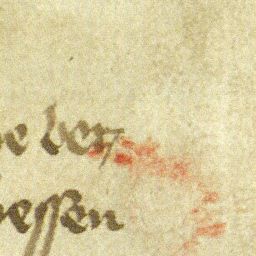 e ber
essen